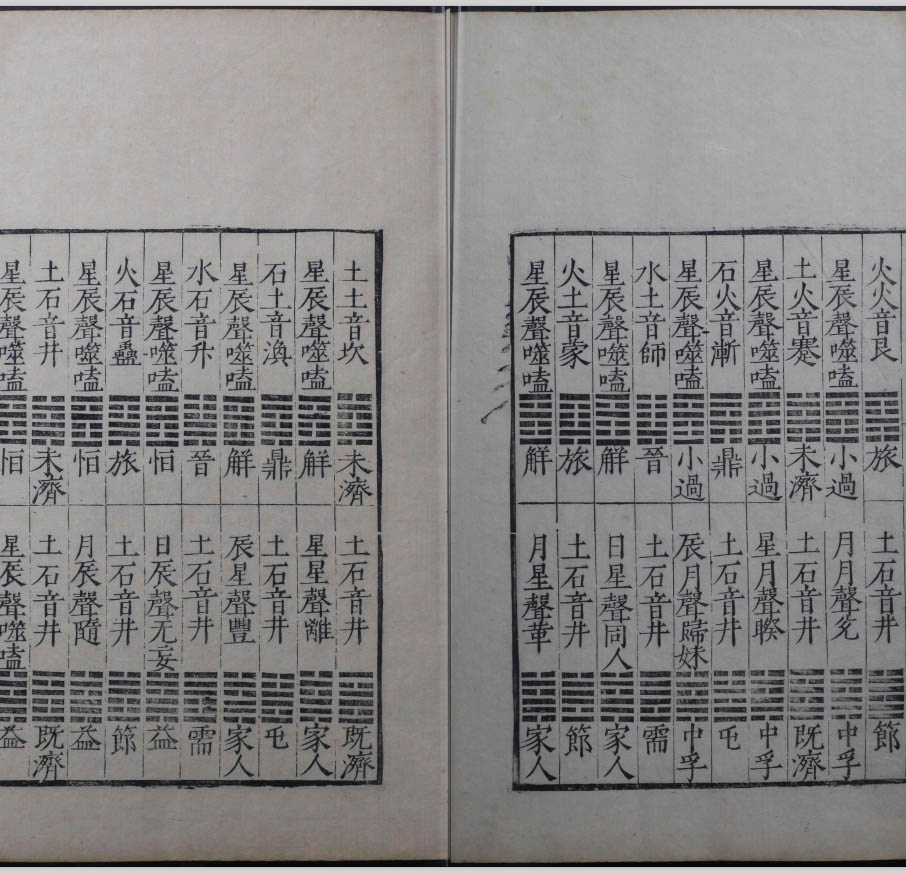 火火音艮 旅
星辰聲噬嗑 小過
土火音蹇 未濟
星辰聲噬嗑 小過
石火音漸 鼎
星辰聲噬嗑 小過
水土音師 晉
星辰聲噬嗑 解
火土音蒙 旅
星辰聲噬嗑 解
土石音井 節
月月聲兌 中孚
土石音井 既濟
星月聲睽 中孚
土石音井 屯
辰月聲歸妹 中孚
土石音井 需
日星聲同人 家人
土石音井 節
月星聲革 家人
土土音坎 未濟
星辰聲噬嗑 解
石土音渙 鼎
星辰聲噬嗑 解
水石音升 晉
星辰聲噬嗑 恒
火石音蠱 旅
星辰聲噬嗑 恒
土石音井 未濟
星辰聲噬嗑 恒
土石音井 既濟
星星聲離 家人
土石音井 屯
辰星聲豐 家人
土石音井 需
日辰聲无妄 益
土石音井 節
月辰聲隨 益
土石音井 既濟
星辰聲噬嗑 益